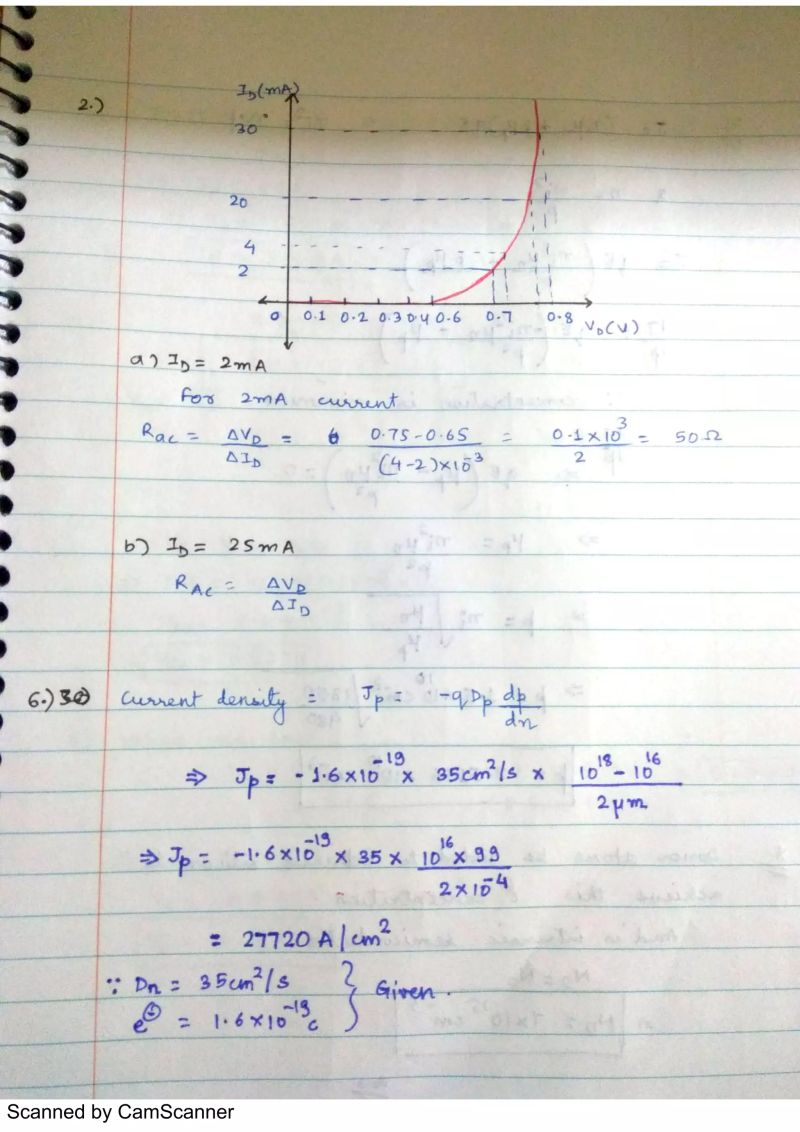 2.)
I_D(mA)
30
20
4
2
0 0.1 0.2 0.3 0.4 0.6 0.7 0.8 V_D(V)
a) I_D = 2mA
For 2mA current
R_ac = ΔV_D/ΔI_D = (0.75-0.65)/((4-2)×10^-3) = (0.1×10^3)/2 = 50Ω
b) I_D = 25mA
R_AC = ΔV_D/ΔI_D
6.) Current density = J_p = -qD_p dp/dn
⇒ J_p = -1.6×10^-19 × 35cm²/s × (10^18 - 10^16)/(2μm)
⇒ J_p = -1.6×10^-19 × 35 × (10^16 × 99)/(2×10^-4)
= 27720 A/cm²
∵ D_n = 35cm²/s } Given.
e = 1.6×10^-19 c
Scanned by CamScanner